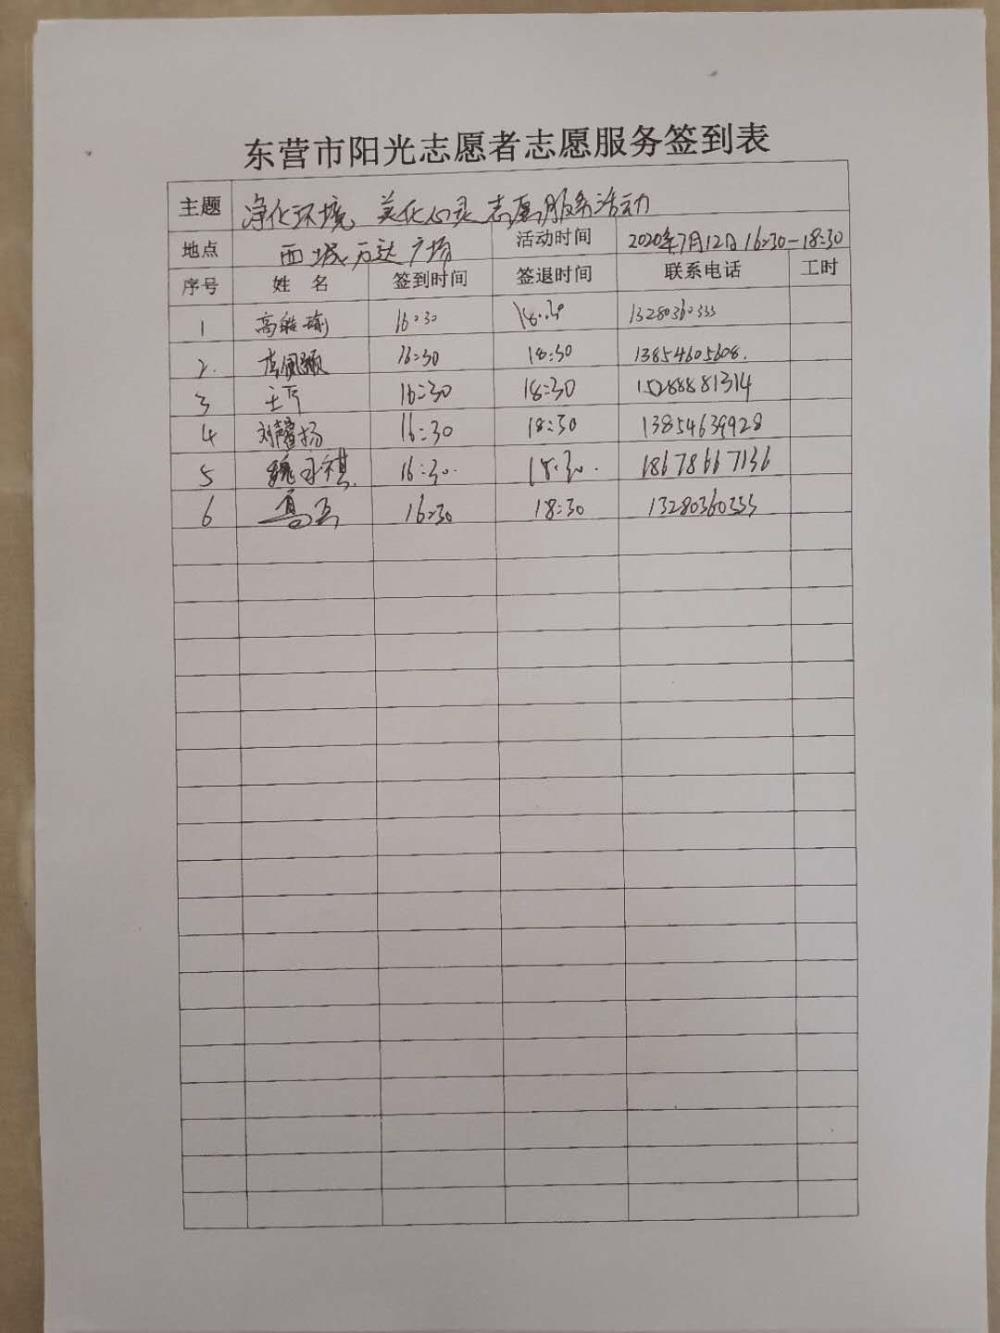 东营市阳光志愿者志愿服务签到表
主题 净化环境、美化心灵志愿服务活动
地点 西城万达广场 活动时间 2020年7月12日16:30-18:30
序号 姓名 签到时间 签退时间 联系电话 工时
1 高 16:30 18:30 13280360333
2. 16:30 18:30 13854605608.
3 16:30 18:30 15288881314
4 刘馨扬 16:30 18:30 13854639928
5 魏子祺. 16:30. 18:30. 18678667136
6 16:30 18:30 13280360333